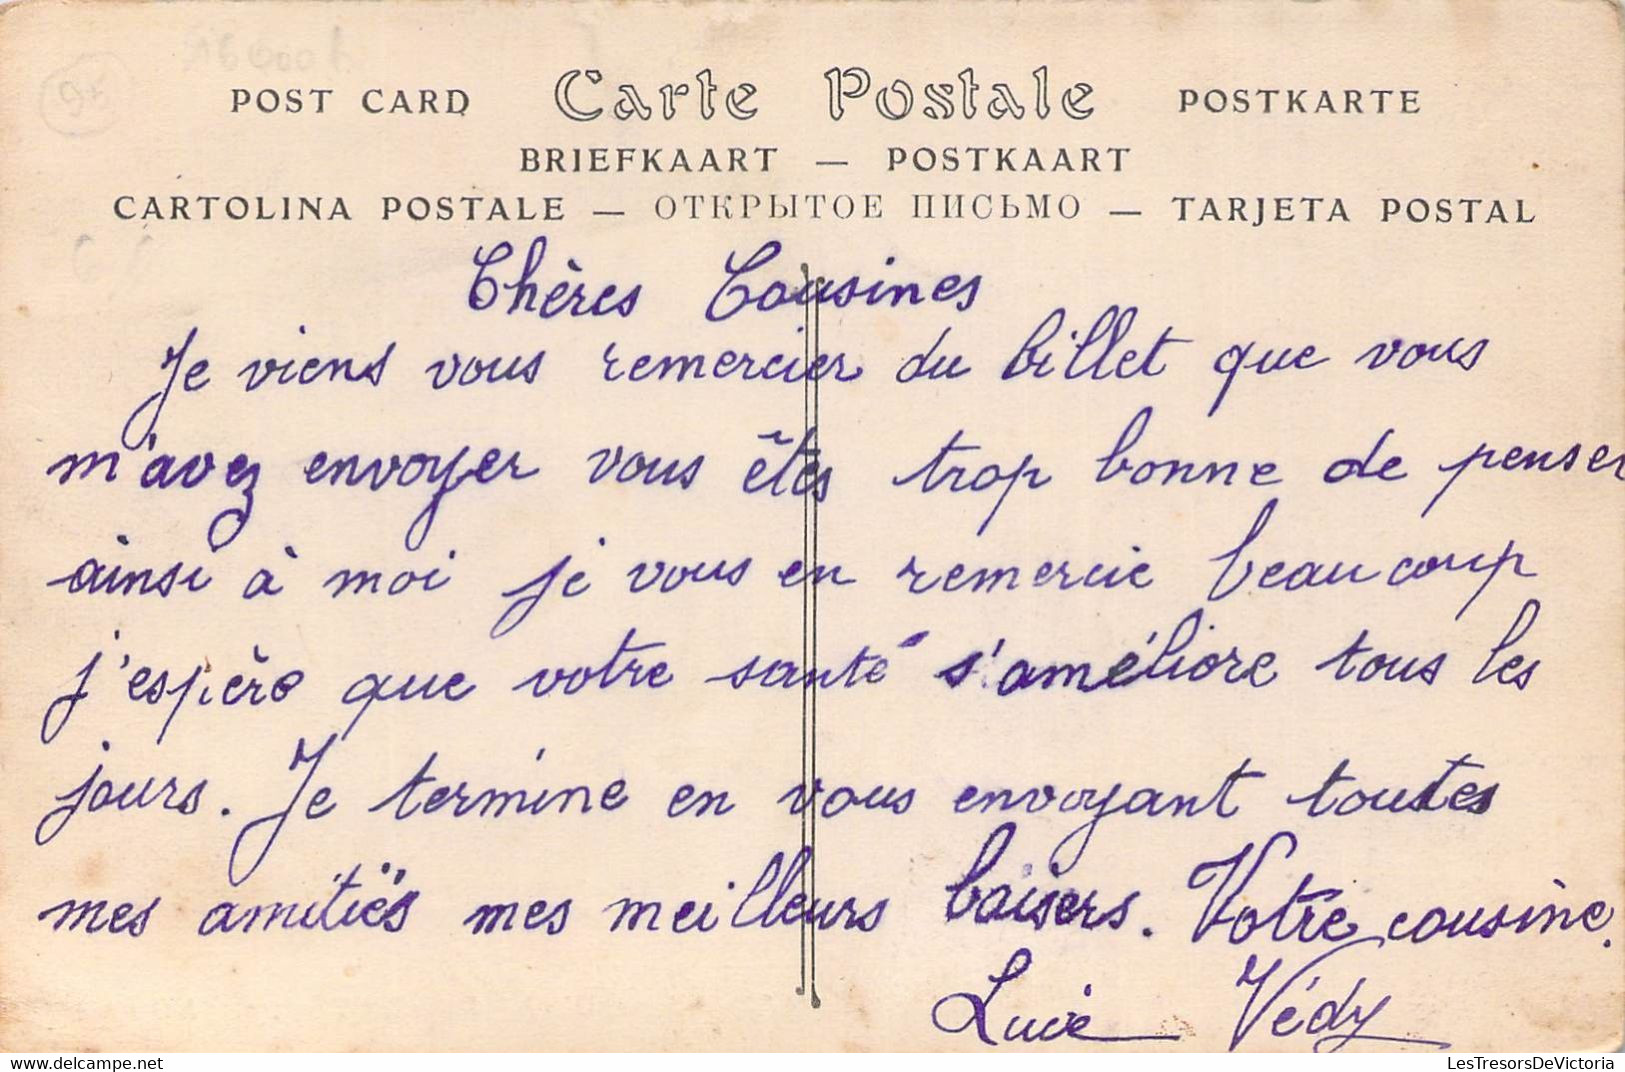 POST CARD Carte Postale POSTKARTE
BRIEFKAART — POSTKAART
CARTOLINA POSTALE — ОТКРЫТОЕ ПИСЬМО — TARJETA POSTAL
Chères Cousines
Je viens vous remercier du billet que vous
m'avez envoyer vous êtes trop bonne de penser
ainsi à moi je vous en remercie beaucoup
j'espère que votre santé s'améliore tous les
jours. Je termine en vous envoyant toutes
mes amitiés mes meilleurs baisers. Votre cousine.
Lucie Védy
LesTresorsDeVictoria